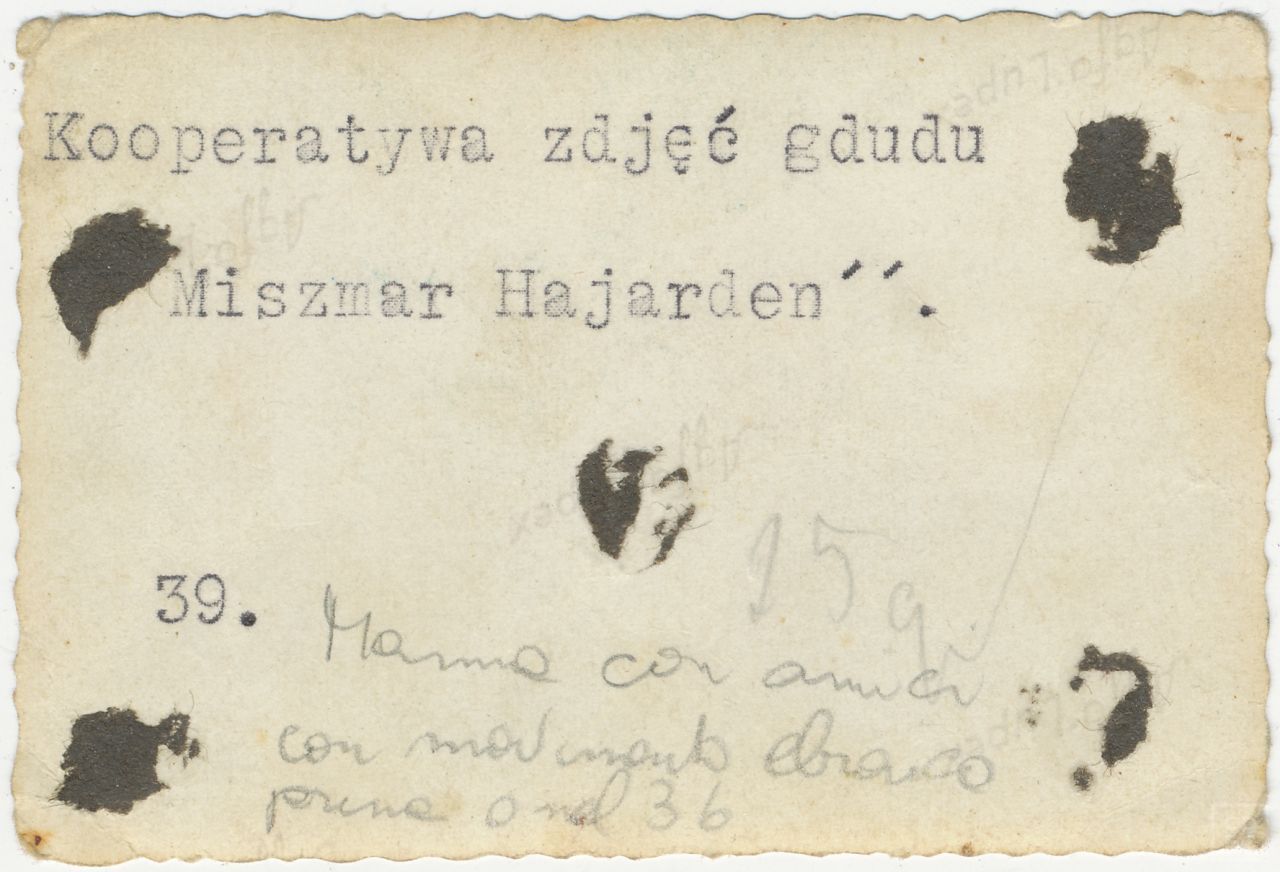 Kooperatywa zdjęć gdudu
Miszmar Hajarden´´.
39.
15 q
Mamma con amici
con movimento ebraico
prima o nel 36